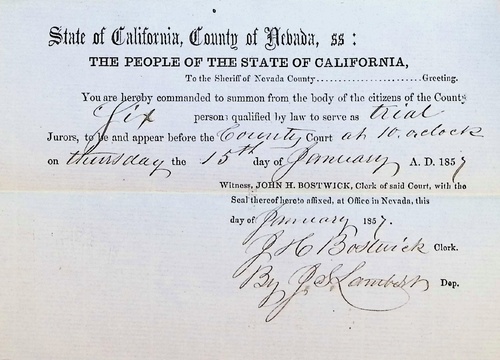 State of California, County of Nevada, ss:
THE PEOPLE OF THE STATE OF CALIFORNIA,
To the Sheriff of Nevada County..................Greeting.
You are hereby commanded to summon from the body of the citizens of the County
Six persons qualified by law to serve as trial
Jurors, to be and appear before the County Court at 10. oclock
on thursday the 15th day of January A. D. 1857
Witness, JOHN H. BOSTWICK, Clerk of said Court, with the
Seal thereof hereto affixed, at Office in Nevada, this
day of January 1857.
J H Bostwick Clerk.
By J. S. Lambert Dep.